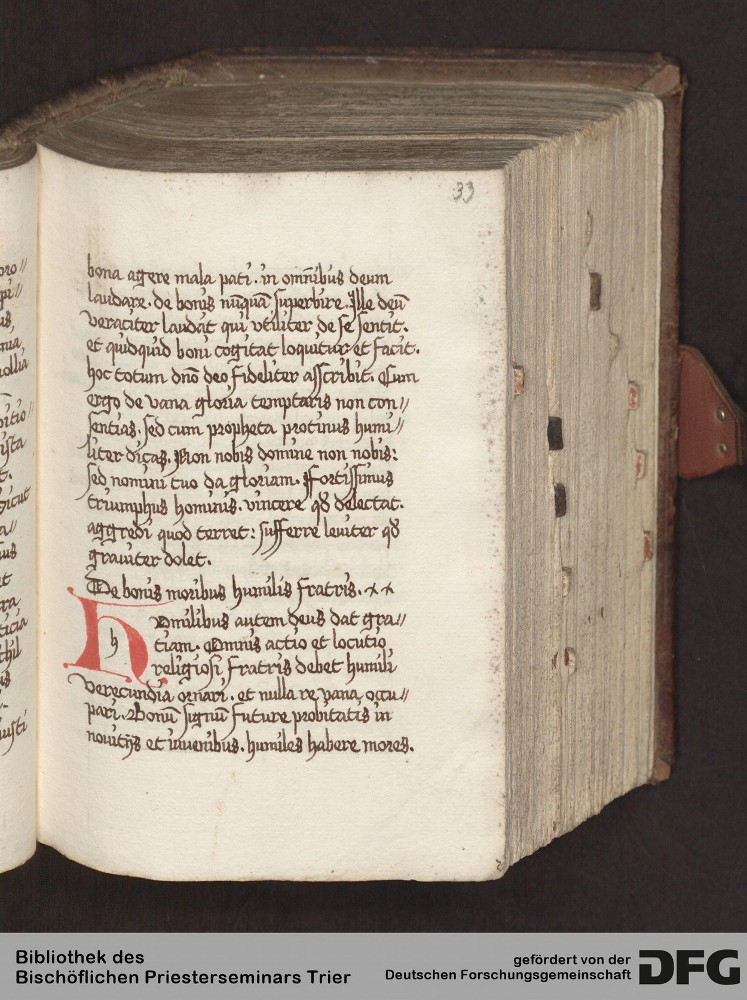 33
bona agere mala pati. in om̄ibus deum
laudare. de bonis nūquā superbire. Ille deū
veraciter laudat qui vtiliter de se sentit.
et quidquid boni cogitat loquitur et facit.
hoc totum dn̄o deo fideliter asscribit. Cum
ergo de vana gloria temptaris non con//
sentias. sed cum propheta protinus humi//
liter dicas. Non nobis domine non nobis:
sed nomini tuo da gloriam. Fortissimus
triumphus hominis. vincere qd̄ delectat.
aggredi quod terret: sufferre leuiter qd̄
grauiter dolet.
De bonis moribus humilis fratris.
h
Vmilibus autem deus dat gra//
tiam. Omnis actio et locutio
religiosi fratris debet humili
verecundia ornari. et nulla re vana occu//
pari. Bonū signū future probitatis in
nouitijs et iuuenibus. humiles habere mores.
Bibliothek des
Bischöflichen Priesterseminars Trier
gefördert von der
Deutschen Forschungsgemeinschaft
DFG